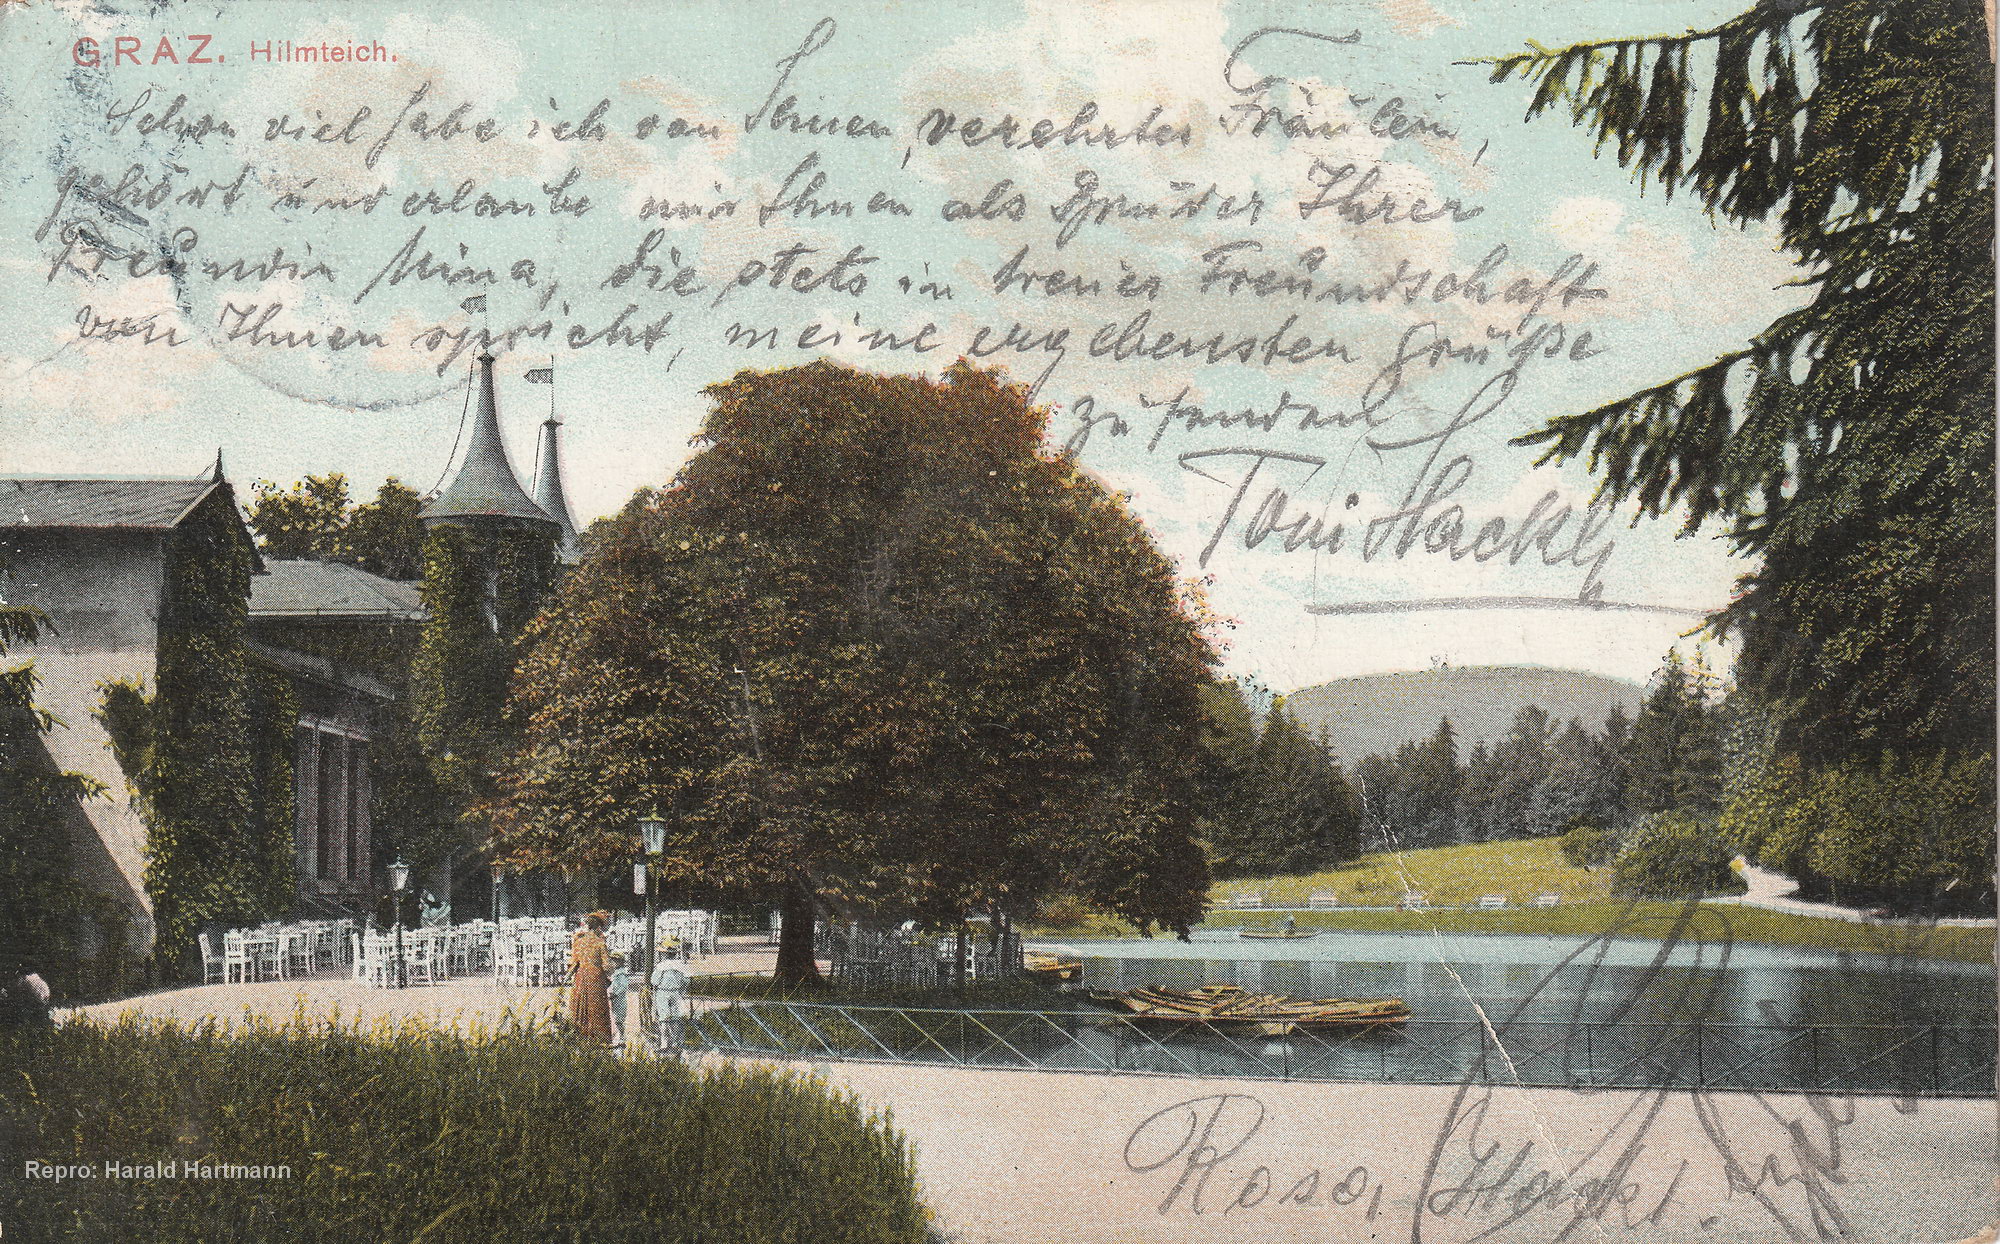 GRAZ. Hilmteich.
Schon viel habe ich von Ihnen, verehrtes Fräulein,
gehört und erlaube mir Ihnen als Bruder Ihrer
Freundin Mina, die stets in treuer Freundschaft
von Ihnen spricht, meine ergebensten Grüße
zu senden
Toni Hackl
Rosa Hackl.
Repro: Harald Hartmann